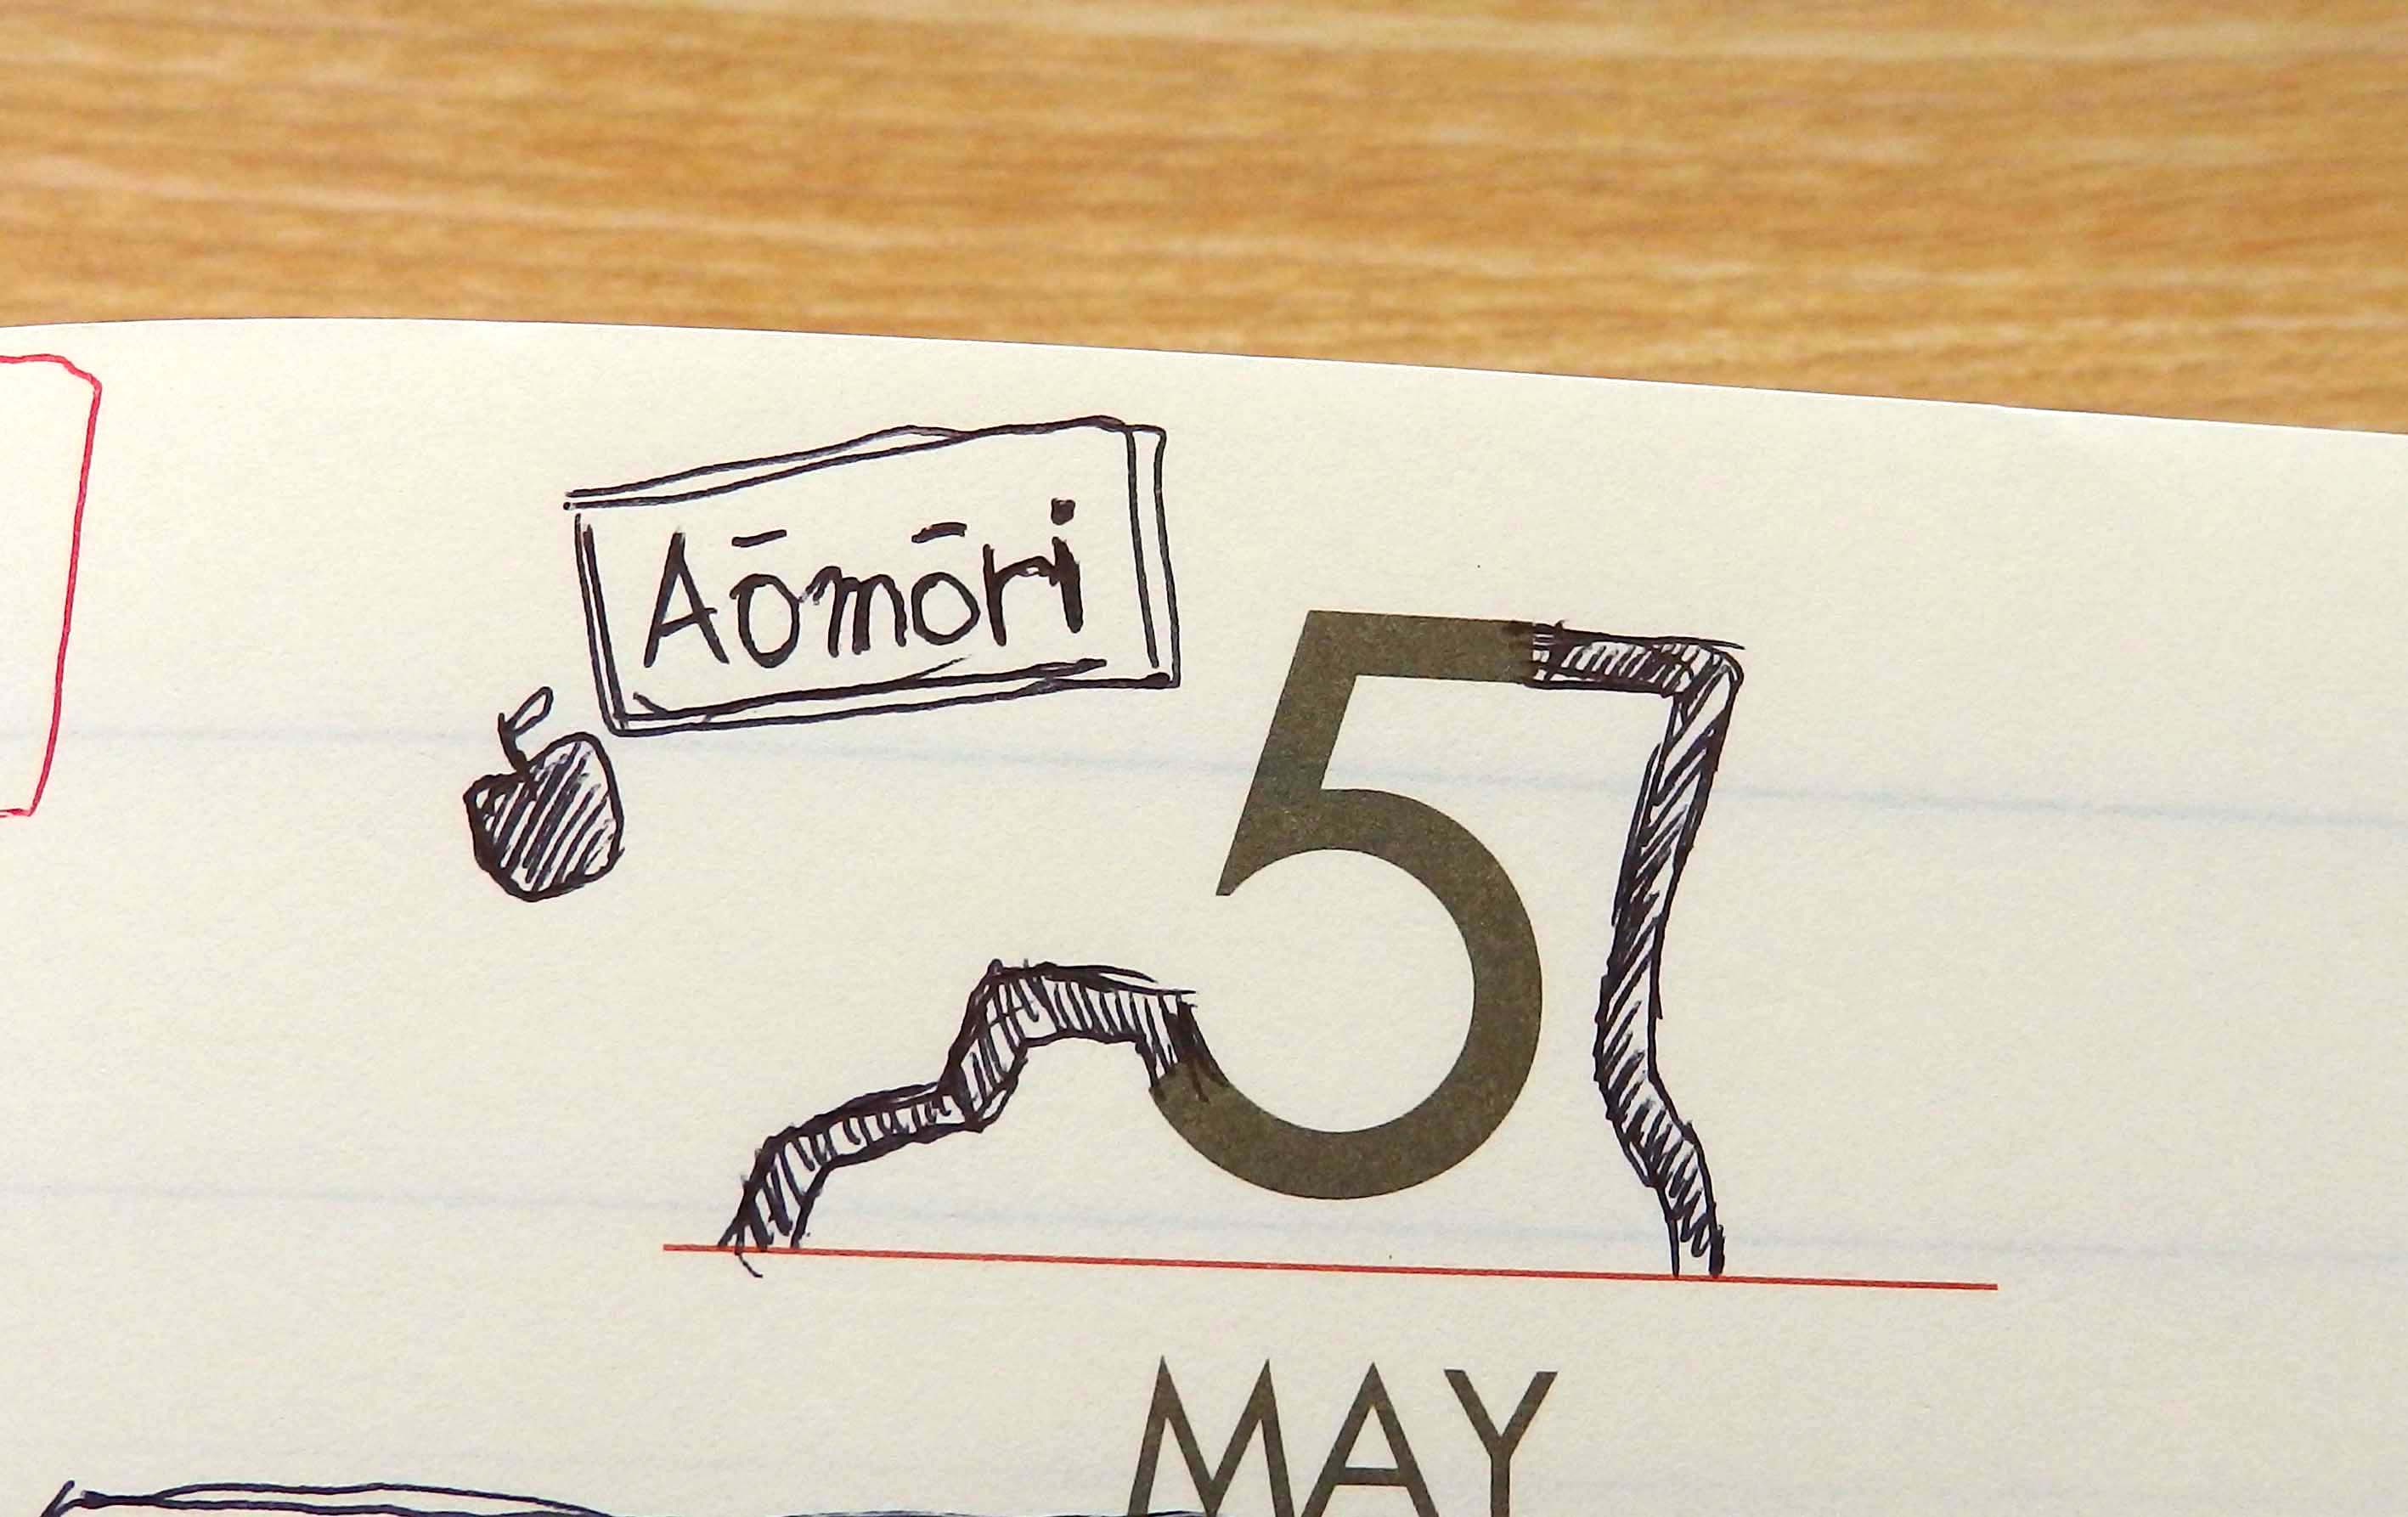 Aōmōri
5
MAY